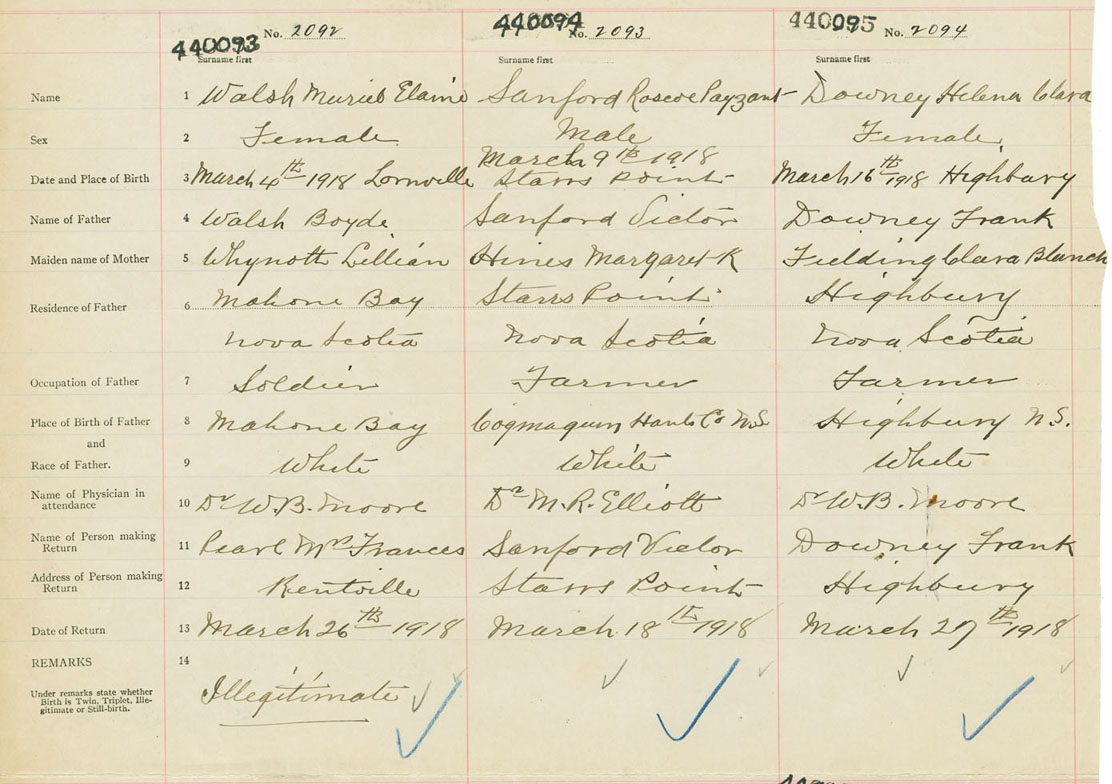 440093 No. 2092 440094 No. 2093 440095 No. 2094
Surname first Surname first Surname first
Name 1 Walsh Muriel Elaine Sanford Roscoe Payzant Downey Helena Clara
Sex 2 Female Male Female
Date and Place of Birth 3 March 4th 1918 Lornville March 9th 1918 Starrs Point March 16th 1918 Highbury
Name of Father 4 Walsh Boyde Sanford Victor Downey Frank
Maiden name of Mother 5 Whynott Lillian Hines Margaret K Fielding Clara Blanch
Residence of Father 6 Mahone Bay Starrs Point Highbury
Nova Scotia Nova Scotia Nova Scotia
Occupation of Father 7 Soldier Farmer Farmer
Place of Birth of Father 8 Mahone Bay Cogmagun Hants Co N.S. Highbury N.S.
and
Race of Father. 9 White White White
Name of Physician in attendance 10 Dr W.B. Moore Dr M.R. Elliott Dr W.B. Moore
Name of Person making Return 11 Pearl Frances Sanford Victor Downey Frank
Address of Person making Return 12 Kentville Starrs Point Highbury
Date of Return 13 March 26th 1918 March 18th 1918 March 27th 1918
REMARKS 14
Under remarks state whether
Birth is Twin, Triplet, Ille-
gitimate or Still-birth.
Illegitimate